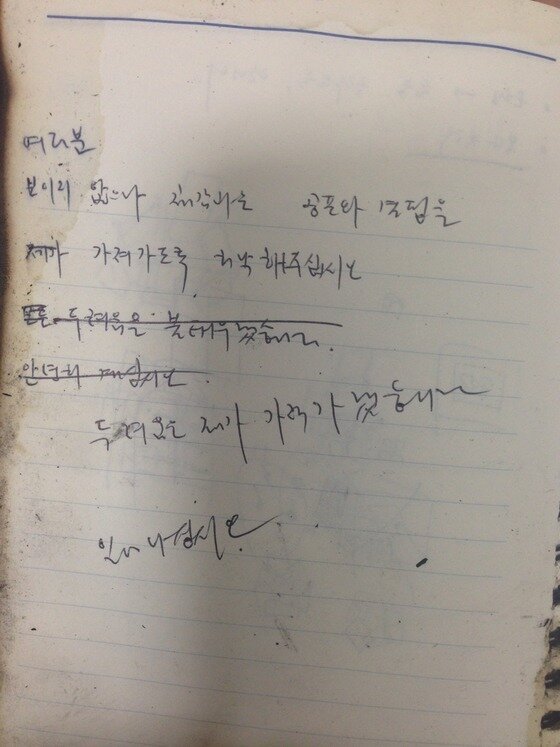 여러분
보이지 않으나 체감하는 공포와 결핍을
제가 가져가도록 허락해주십시오
모든 두려움을 불태우겠습니다.
안녕히 계십시오
두려움은 제가 가져가겠습니다
일어나십시오.